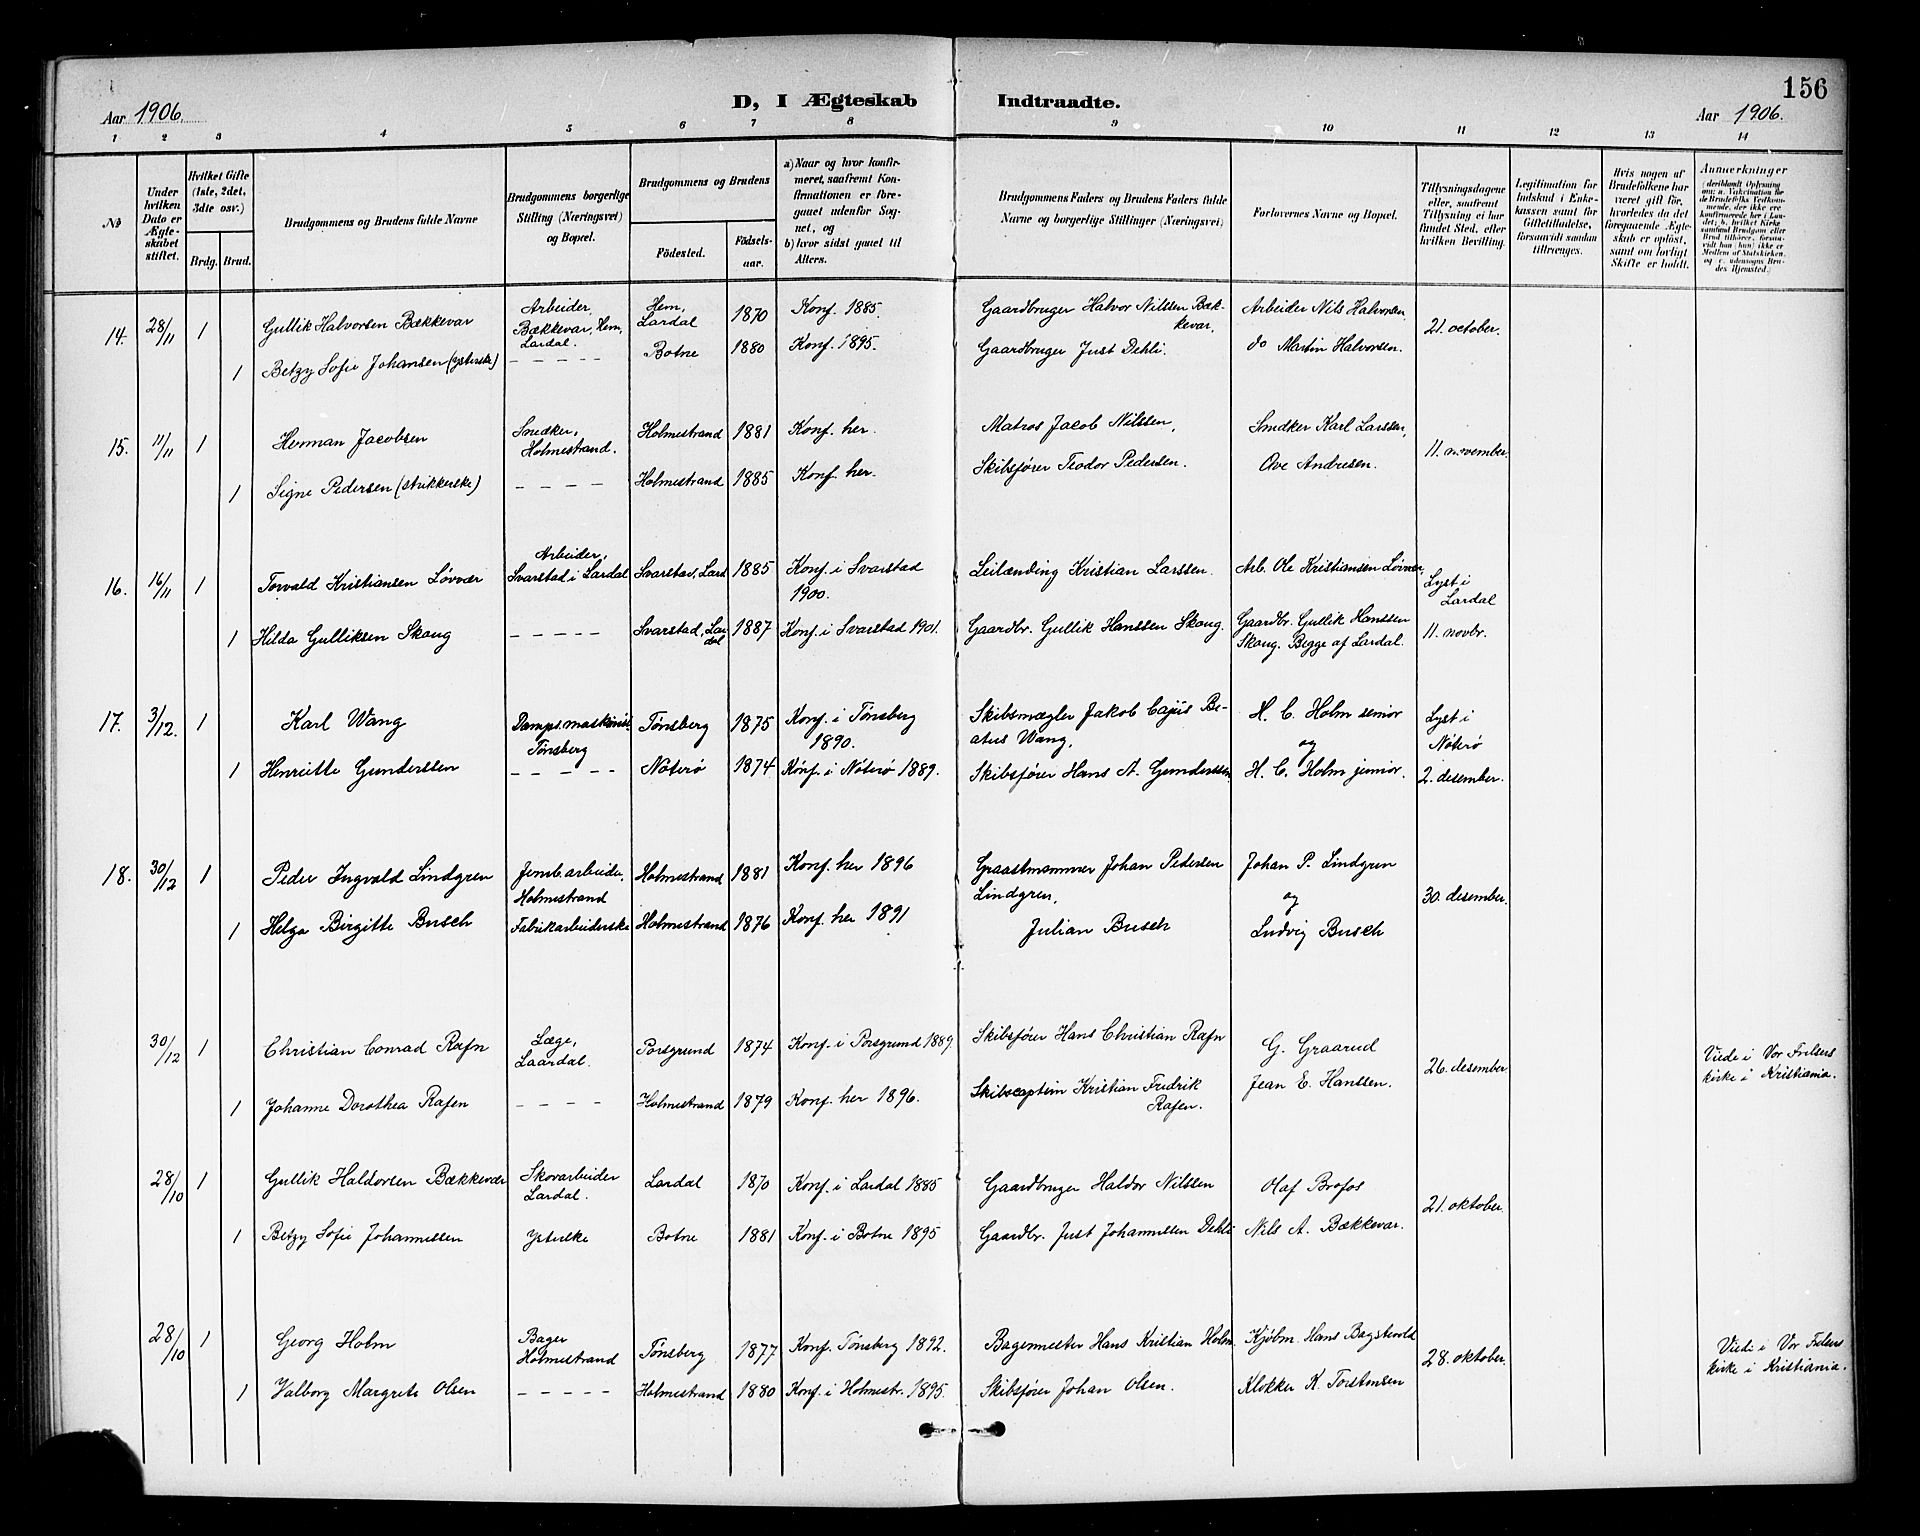 156
D, I Ægteskab Indtraadte.
Aar 1906.
Aar 1906.
1 2 3 4 5 6 7 8 9 10 11 12 13 14
No
Under hvilken Dato er Ægteskabet stiftet.
Hvilket Gifte (1ste, 2det, 3die osv.)
Brdg. Brud.
Brudgommens og Brudens fulde Navne
Brudgommens borgerlige Stilling (Næringsvei) og Bopæl.
Brudgommens og Brudens
Fødested.
Fødselsaar.
a) Naar og hvor konfirmeret, saafremt Konfirmationen er foregaaet udenfor Sognet, og
b) hvor sidst gaaet til Alters.
Brudgommens Faders og Brudens Faders fulde Navne og borgerlige Stillinger (Næringsvei)
Forlovernes Navne og Bopæl.
Tillysningsdagene eller, saafremt Tillysning ei har fundet Sted, efter hvilken Bevilling.
Legitimation for Indskud i Enkekassen samt for Giftetilladelse, forsaavidt saadan tiltrænges.
Hvis nogen af Brudefolkene har været gift før, hvorledes da det foregaaende Ægteskab er opløst, samt om lovligt Skifte er holdt.
Anmærkninger
(deriblandt Oplysning om: a. Vakcination for de Brudefolks Vedkommende, der ikke ere konfirmerede her i Landet; b. hvilket Kirkesamfund Brudgom eller Brud tilhører, forsaavidt han (hun) ikke er Medlem af Statskirken, og c. udensogns Brudes Hjemsted.)
14. 28/11 1 Gullik Halvorsen Bækkevar Arbeider, Bækkevar, Hem, Lardal. Hem, Lardal 1870 Konf. 1885. Gaardbruger Halvor Nilssen Bækkevar, Arbeider Nils Halvorsen, 21. october.
1 Betzy Sofie Johansen (ysterske) – – – – Botne 1880 Konf. 1895. Gaardbruger Just Dehli. do Martin Halvorsen.
15. 11/11 1 Herman Jacobsen Snedker, Holmestrand. Holmestrand 1881 Konf. her. Matros Jacob Nilssen, Snedker Karl Larssen, 11. november.
1 Signe Pedersen (strikkerske) – – – – Holmestrand 1885 Konf. her. Skibsfører Teodor Pedersen. Ove Andresen.
16. 16/11 1 Torvald Kristiansen Løvvær Arbeider, Svarstad i Lardal Svarstad, Lard 1885 Konf. i Svarstad 1900. Leilænding Kristian Larssen. Arb. Ole Kristiansen Løvvær, Lyst i Lardal
1 Hilda Gulliksen Skaug – – – – – Svarstad, Lardal 1887 Konf. i Svarstad 1901. Gaardbr. Gullik Hanssen Skaug. Gaardbr. Gullik Hanssen Skaug. Begge af Lardal. 11. novbr.
17. 3/12. 1 Karl Wang Damps.maskinist Tønsberg Tønsberg 1875 Konf. i Tønsberg 1890. Skibsmægler Jakob Cajus Beatus Wang, H. C. Holm senior og Lyst i Nøterø
1 Henriette Gunderssen – – – – – Nøterø 1874 Konf. i Nøterø 1889. Skibsfører Hans A. Gunderssen H. C. Holm junior. 2. desember.
18. 30/12 1 Peder Ingvald Lindgren Jernb.arbeider, Holmestrand Holmestrand 1881 Konf. her 1896 Graastensmurer Johan Pedersen Lindgren, Johan P. Lindgren og 30. desember.
1 Helga Birgitte Busch Fabrikarbeiderske Holmestrand 1876 Konf. her 1891 Julian Busch Ludvig Busch
30/12 1 Christian Conrad Rafn Læge, Laardal. Porsgrund 1874 Konf. i Porsgrund 1889 Skibsfører Hans Christian Rafn G. Graarud 26. desember Viede i Vor Frelsers kirke i Kristiania.
1 Johanne Dorothea Rafen – – – – Holmestrand 1879 Konf. her 1896. Skibscaptein Kristian Fredrik Rafen. Jean E. Hanssen.
28/10 1 Gullik Haldorsen Bækkevær Skovarbeider Lardal. Lardal 1870 Konf. i Lardal 1885 Gaardbruger Haldor Nilssen Olaf Brofos 21. oktober.
1 Betzy Sofie Johannessen Ysterske Botne 1881 Konf. i Botne 1895 Gaardbr. Just Johannessen Dehli Nils A. Bækkevar.
28/10 1 Georg Holm Bager Holmestrand Tønsberg 1877 Konf. Tønsberg 1892. Bagermester Hans Kristian Holm Kjøbm. Hans Bagstevold 28. oktober. Viede i Vor Frelsers kirke i Kristiania.
1 Valborg Margrete Olsen – – – – – Holmestrand 1880 Konf. i Holmestr. 1895. Skibsfører Johan Olsen. Klokker K. Torstensen